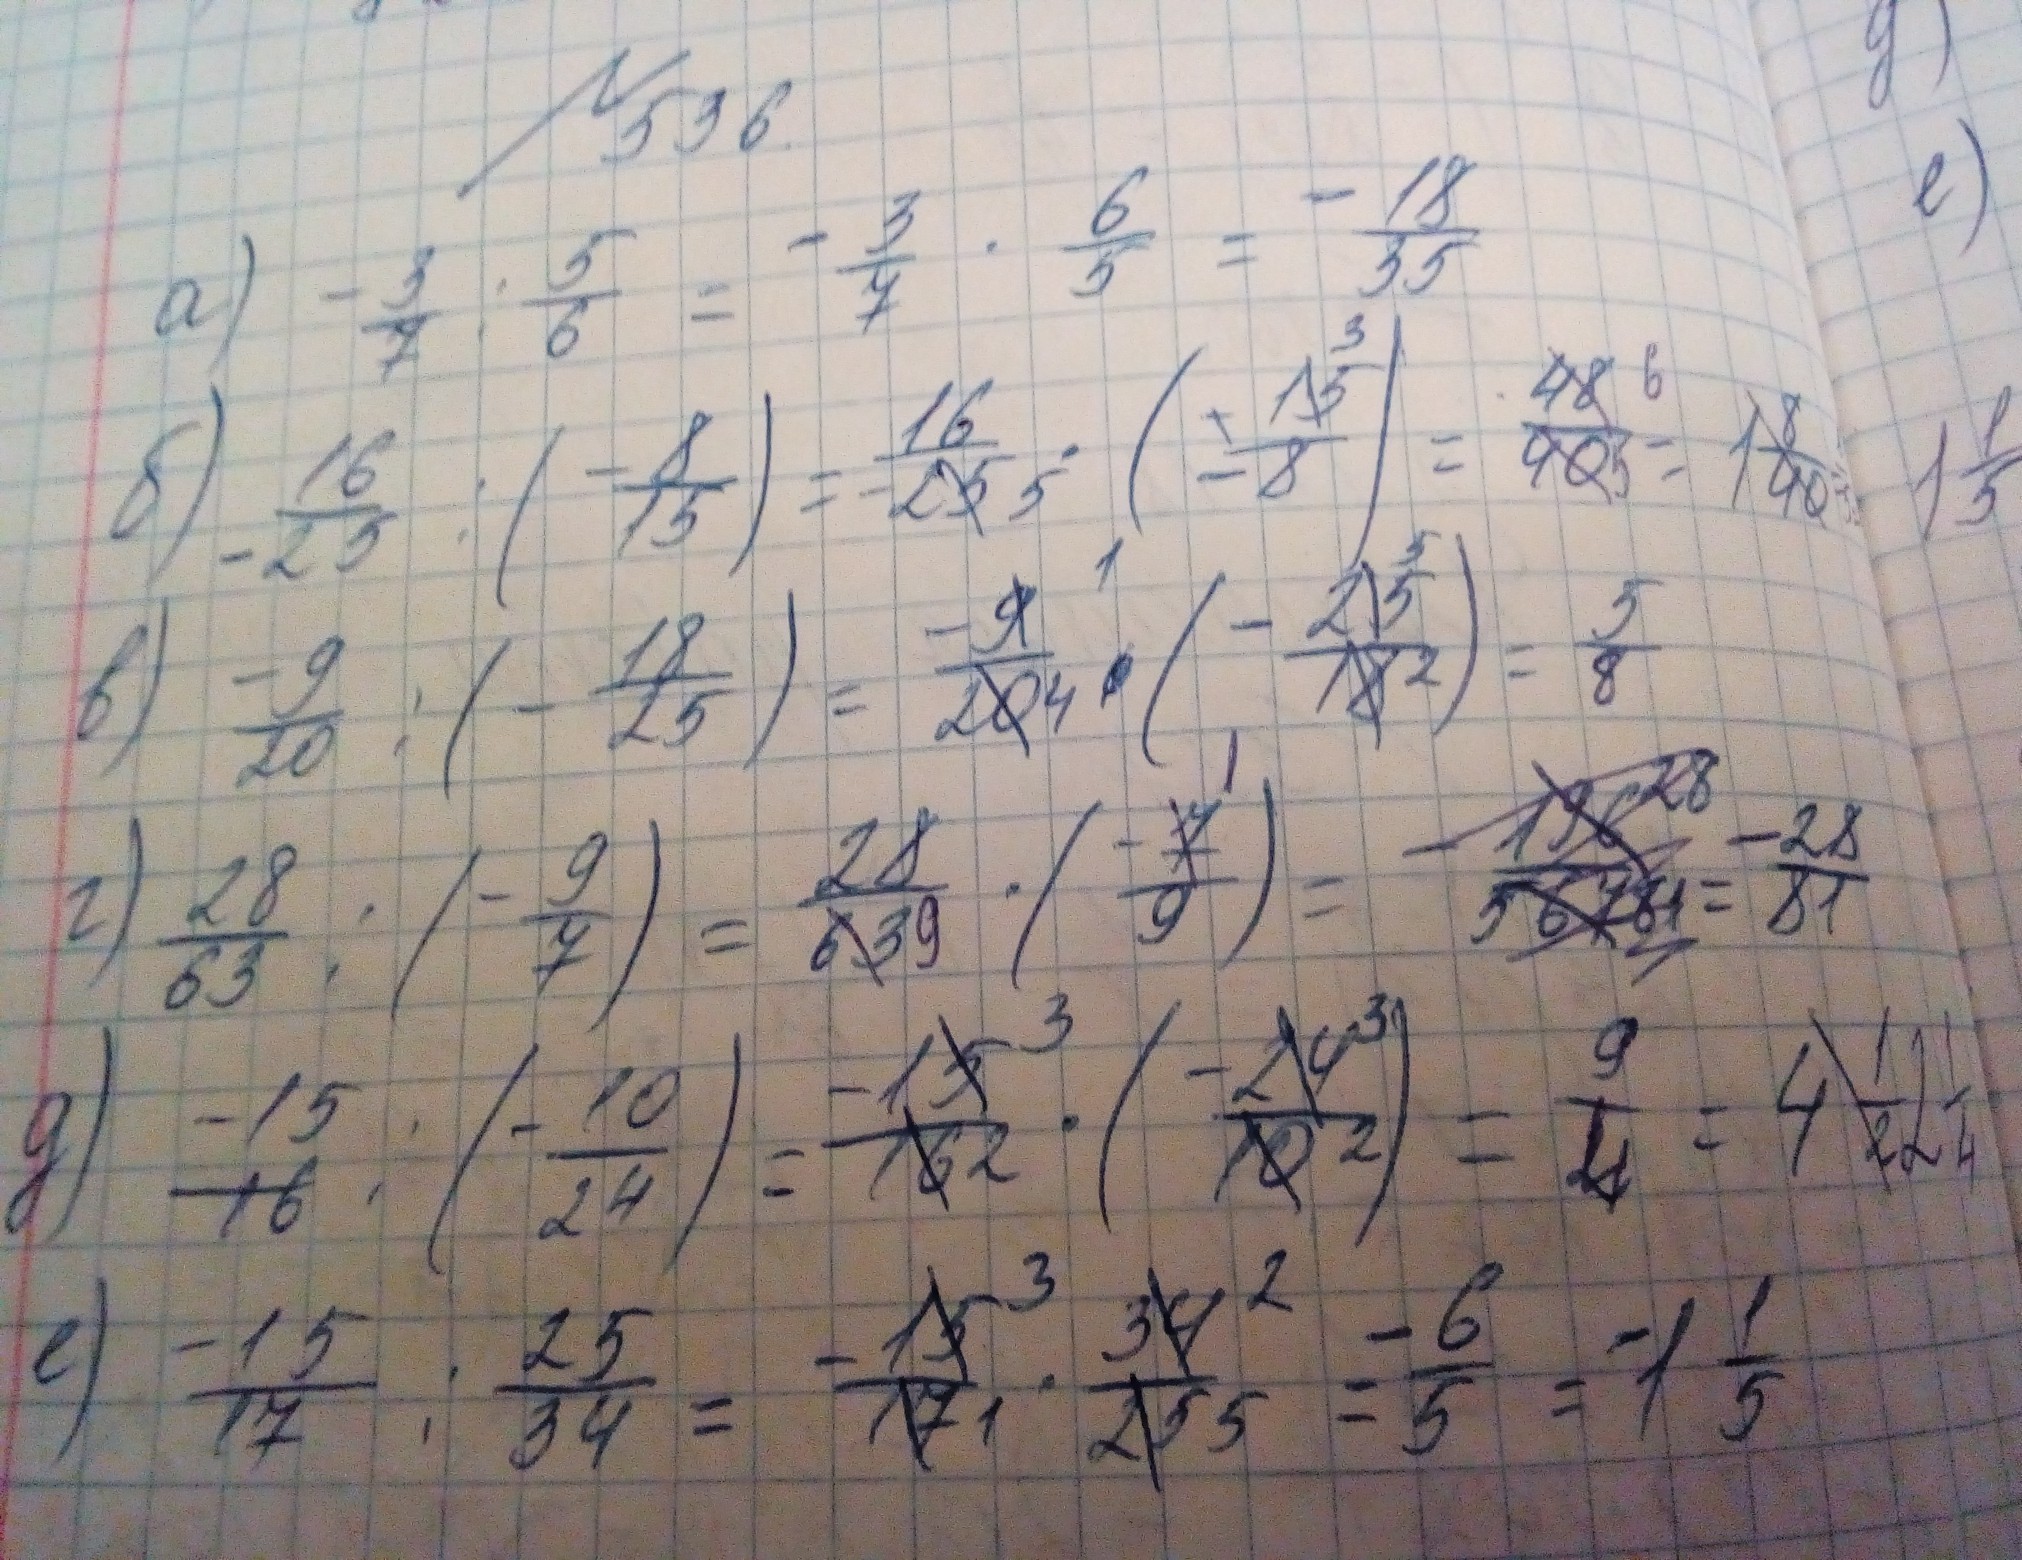 № 536.
а) -3/7 : 5/6 = -3/7 · 6/5 = -18/35
б) 16/-25 : (-8/15) = 16/-25 5 · (-15 3/-8) = 48 6/40 5 = 1 8/40 1 1/5
в) -9/20 : (-18/25) = -9 1/20 4 · (-25 5/18 2) = 5/8
г) 28/63 : (-9/7) = 28/63 9 · (-7 1/9) = -196 28/567 81 = -28/81
д) -15/16 : (-10/24) = -15 3/16 2 · (-24 3/10 2) = 9/4 = 4 1/2 2 1/4
е) -15/17 : 25/34 = -15 3/17 1 · 34 2/25 5 = -6/5 = -1 1/5
д)
е)